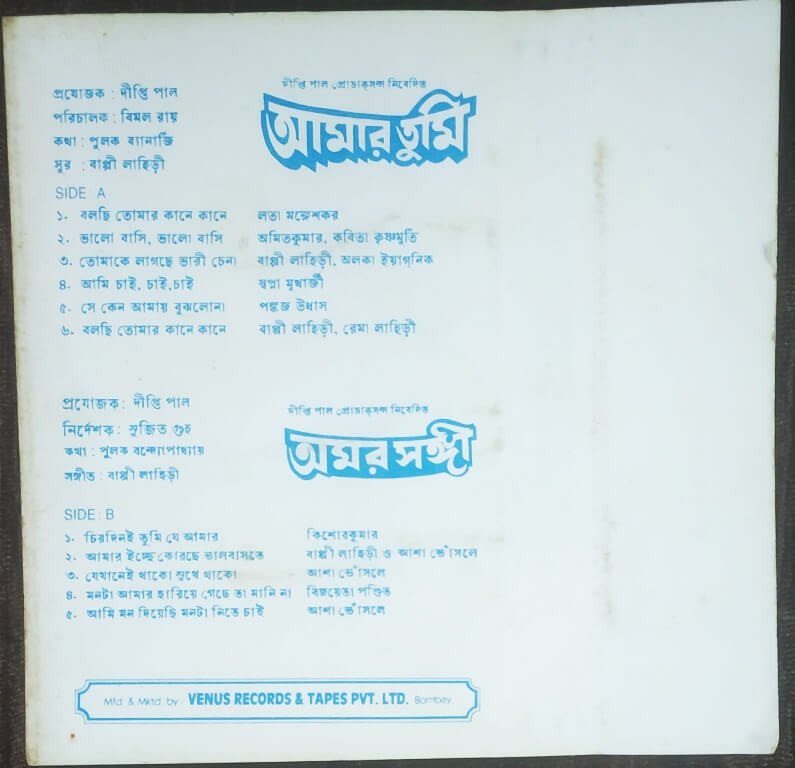 প্রযোজক : দীপ্তি পাল
পরিচালক : বিমল রায়
কথা : পুলক ব্যানার্জি
সুর : বাপ্পী লাহিড়ী
দীপ্তি পাল প্রোডাকসন্স নিবেদিত
আমার তুমি
SIDE A
১. বলছি তোমার কানে কানে লতা মঙ্গেশকর
২. ভালো বাসি, ভালো বাসি অমিতকুমার, কবিতা কৃষ্ণমূর্তি
৩. তোমাকে লাগছে ভারী চেনা বাপ্পী লাহিড়ী, অলকা ইয়াগ্‌নিক
৪. আমি চাই, চাই, চাই স্বপ্না মুখার্জী
৫. সে কেন আমায় বুঝলোনা পঙ্কজ উধাস
৬. বলছি তোমার কানে কানে বাপ্পী লাহিড়ী, রেমা লাহিড়ী
প্রযোজক : দীপ্তি পাল
নির্দেশক : সুজিত গুহ
কথা : পুলক বন্দ্যোপাধ্যায়
সঙ্গীত : বাপ্পী লাহিড়ী
দীপ্তি পাল প্রোডাকসন্স নিবেদিত
অমর সঙ্গী
SIDE : B
১. চিরদিনই তুমি যে আমার কিশোরকুমার
২. আমার ইচ্ছে কোরছে ভালবাসতে বাপ্পী লাহিড়ী ও আশা ভোঁসলে
৩. যেখানেই থাকো সুখে থাকো আশা ভোঁসলে
৪. মনটা আমার হারিয়ে গেছে তা মানি না বিজয়েতা পণ্ডিত
৫. আমি মন দিয়েছি মনটা নিতে চাই আশা ভোঁসলে
Mfd. & Mktd. by VENUS RECORDS & TAPES PVT. LTD. Bombay.